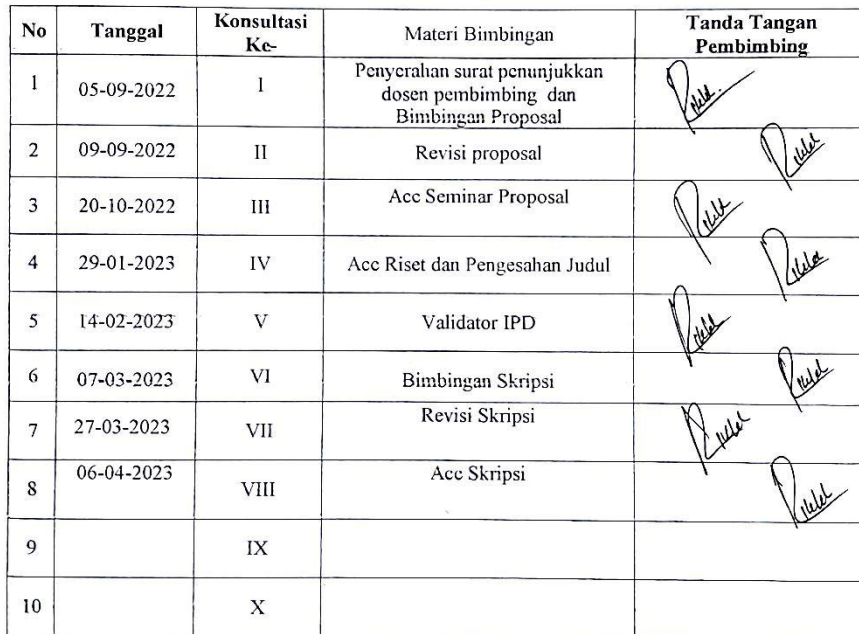 No Tanggal Konsultasi Ke- Materi Bimbingan Tanda Tangan Pembimbing
1 05-09-2022 I Penyerahan surat penunjukkan
dosen pembimbing dan
Bimbingan Proposal
2 09-09-2022 II Revisi proposal
3 20-10-2022 III Acc Seminar Proposal
4 29-01-2023 IV Acc Riset dan Pengesahan Judul
5 14-02-2023 V Validator IPD
6 07-03-2023 VI Bimbingan Skripsi
7 27-03-2023 VII Revisi Skripsi
8 06-04-2023 VIII Acc Skripsi
9 IX
10 X